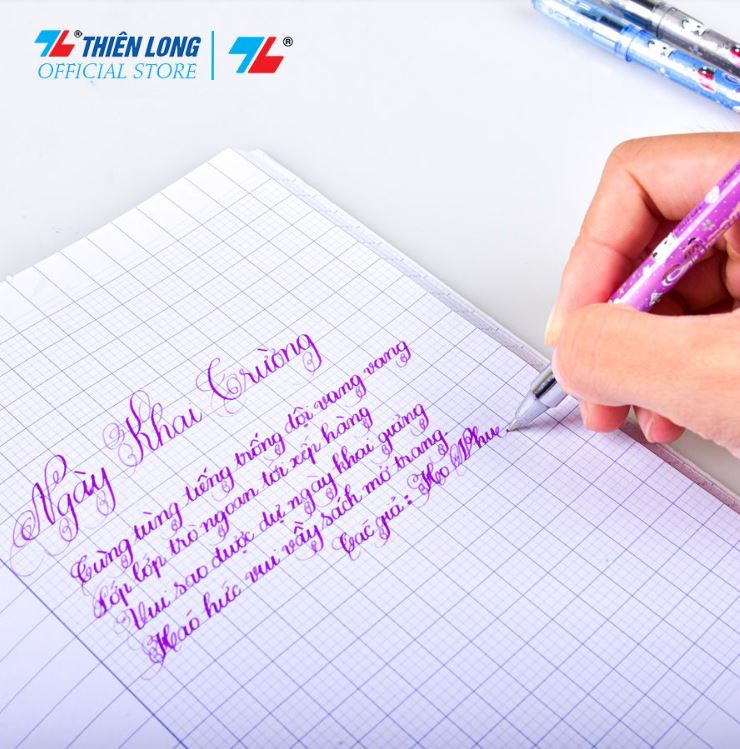 THIÊN LONG
OFFICIAL STORE
Ngày Khai Trường
Tùng tùng tiếng trống dội vang vang
Lớp lớp trò ngoan tới xếp hàng
Vui sao được dự ngay khai giảng
Háo hức vui vầy sách mở trang
Tác giả: Họ Phue